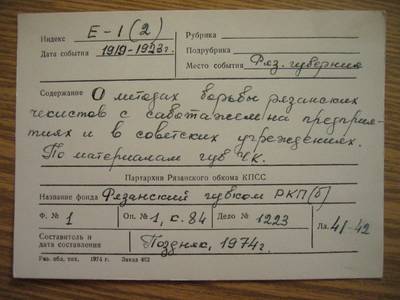 Индекс Е-1(2) Рубрика
Дата события 1919-1923г. Подрубрика
Место события Ряз. губерния
Содержание О методах борьбы рязанских
чекистов с саботажем на предприя-
тиях и в советских учреждениях.
По материалам губ ЧК.
Партархив Рязанского обкома КПСС
Название фонда Рязанский губком РКП(б)
Ф. № 1 Оп. № 1, с. 84 Дело № 1223 Лл. 41-42
Составитель и
дата составления Поздняк, 1974г.
Ряз. обл. тип. 1974 г. Заказ 462